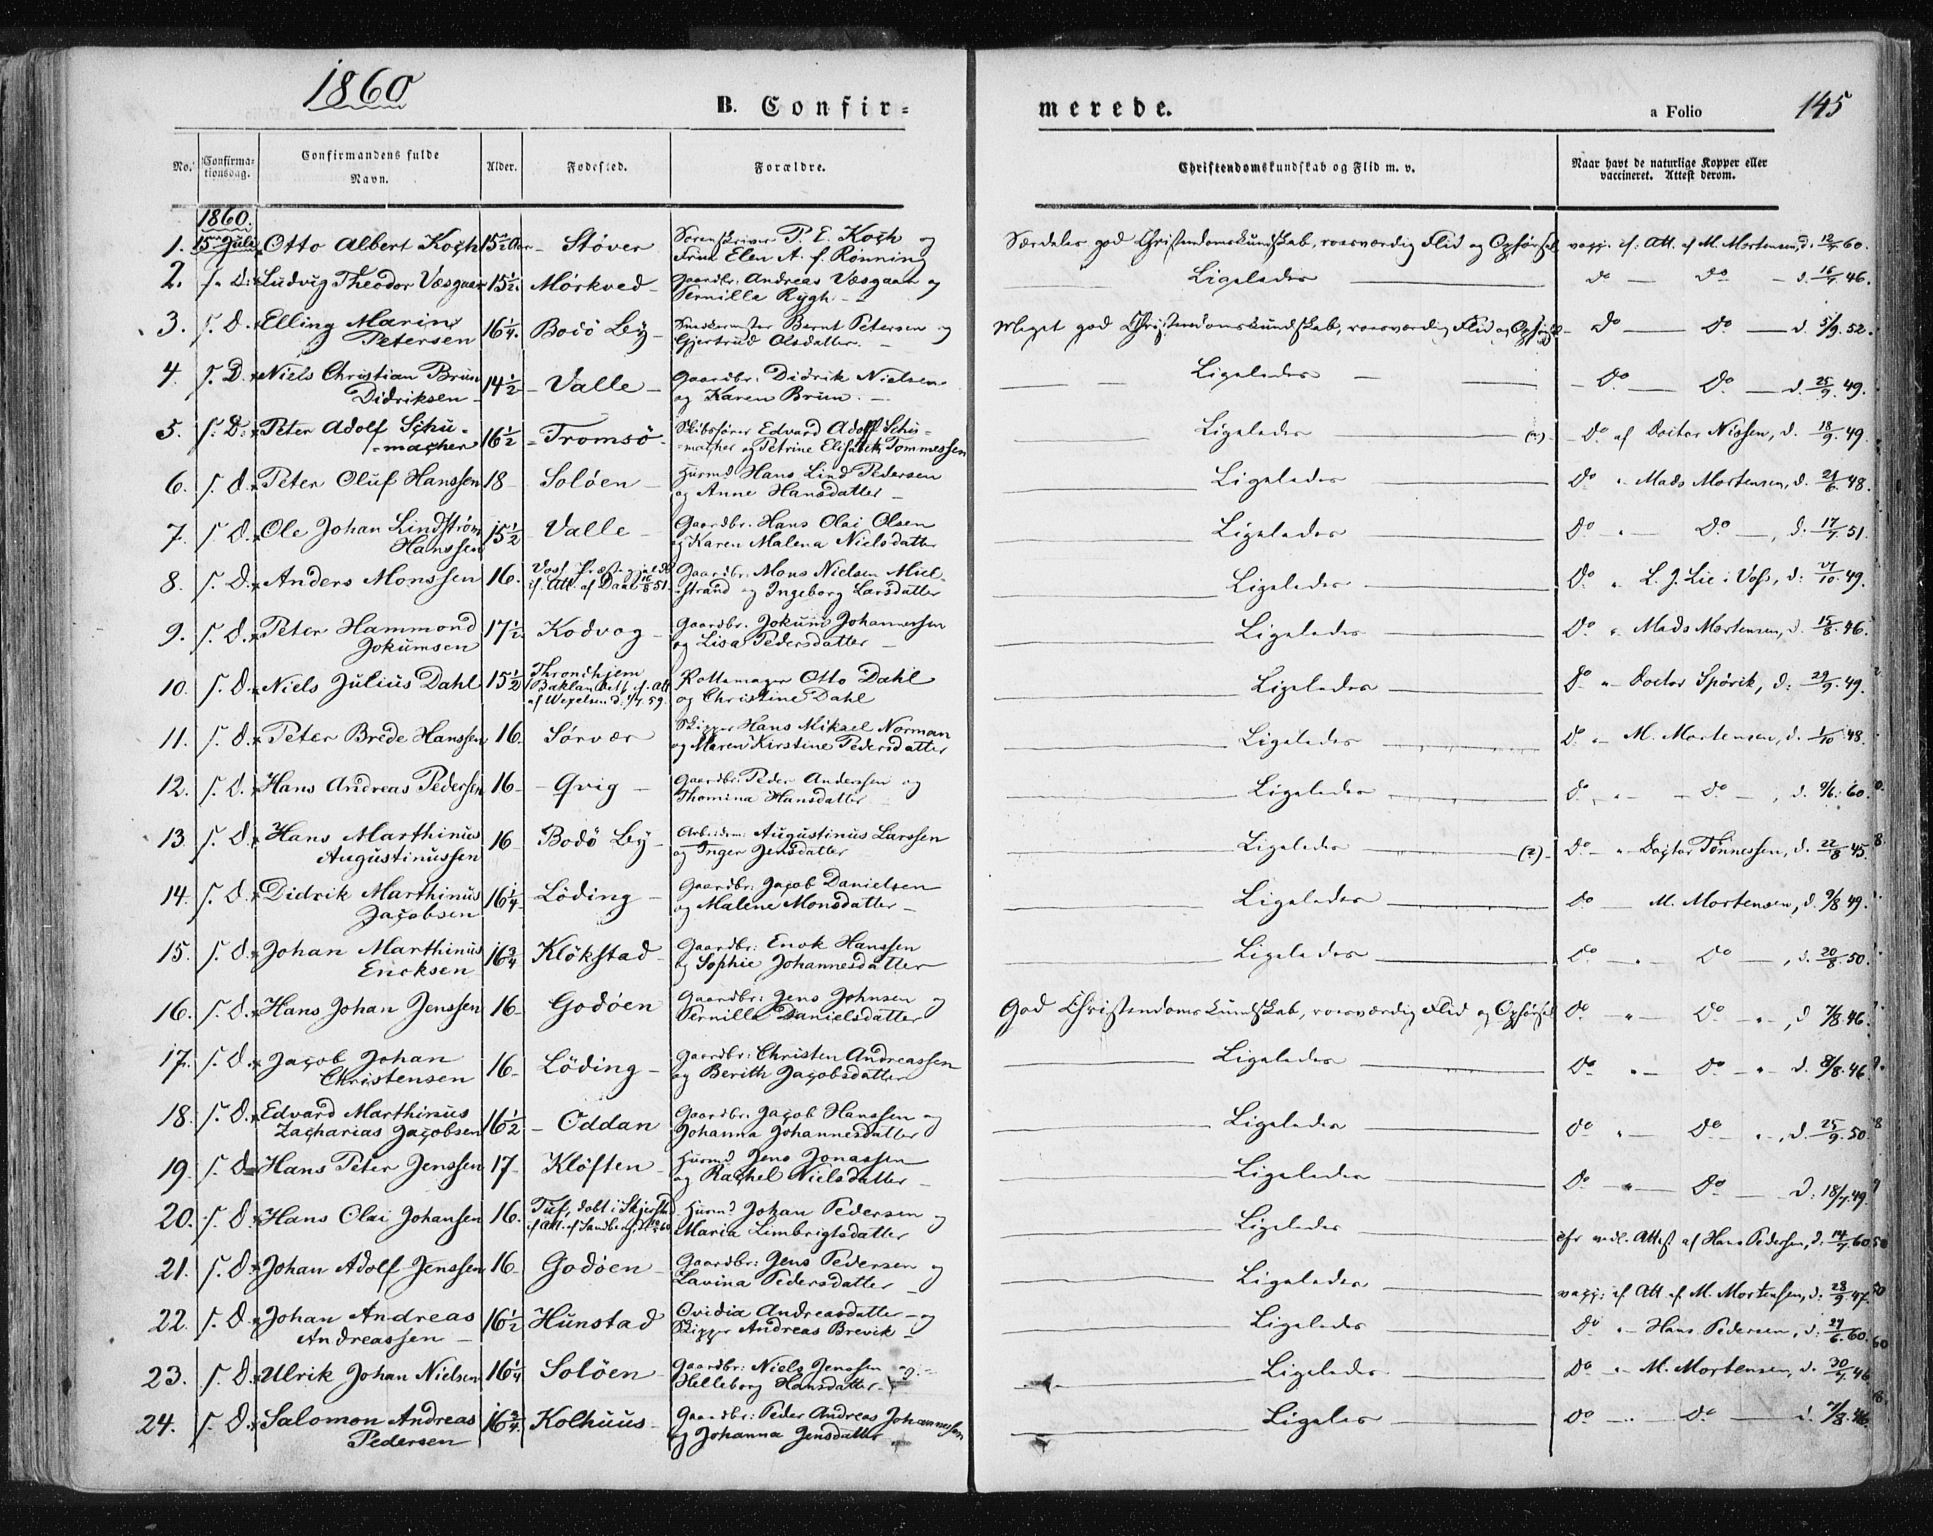 1860
B. Confir=
merede.
a Folio
145
No.
Confirma=
tionsdag.
Confirmandens fulde
Navn.
Alder.
Fødested.
Forældre.
Christendomskundskab og Flid m. v.
Naar havt de naturlige Kopper eller
vaccineret. Attest derom.
1860.
1. 15 Juli Otto Albert Koch 15½ Aar - Støver Sorenskriver P. E. Koch og
Frue Elen A. f. Rönning
Særdeles god Christendomskundskab, roesværdig Flid og Opførsel vacc. if. Att. af M. Mortensen, d. 60.
2. s. D. Ludvig Theodor Væsgaar 15½ Mörkved Gaardbr. Andreas Væsgaar og
Pernilla Rygh
Ligeledes Do Do d. 46.
3. s. D. Elling Marin
Petersen 16¼ Bodö By Snedkermester Bernt Petersen og
Gjertrud Olsdatter.
Meget god Christendomskundskab, roesværdig Flid og Opførsel Do Do d. 5/9. 52.
4. s. D. Niels Christian Brun
Didriksen 14½ Valle Gaardbr: Didrik Nielsen
og Karen Brun.
Ligeledes Do Do d. 25/9. 49.
5. s. D. Peter Adolf Schu-
-macher 16½ Tromsö Skibsfører Edvard Adolf Schu-
-macher og Petrine Elisabeth Tommessen
Ligeledes Do af Doctor Nissen, d. 18/9. 49.
6. s. D. Peter Oluf Hanssen 18 Solöen Huusmd Hans Lind Pedersen
og Anne Hansdatter
Ligeledes Do " Mads Mortensen, d. 48.
7. s. D. Ole Johan Lindström
Hanssen 15½ Valle Gaardbr. Hans Olai Olsen
og Karen Malena Nielsdatter
Ligeledes Do " Do, d. 17/7 51.
8. s. D. Anders Monssen 16. Voss Præstegjæld
if. Att. af 51. Gaardbr. Mons Nielsen Miel-
-strand og Ingeborg Larsdatter
Ligeledes Do " L. J. Lie i Voss, d. 49.
9. s. D. Peter Hammond
Jokumsen 17½ Kodvag Gaardbr. Jokum Johannessen
og Lisa Pedersdatter
Ligeledes Do " Mads Mortensen, d. 15/8. 46.
10. s. D. Niels Julius Dahl 15½ Throndhjem
Baklandet, if. Att
af Wexelsen d. 59. Otto Dahl
og Christine Dahl
Ligeledes Do " Doctor Spörck, d. 29/9. 49.
11. s. D. Peter Brede Hanssen 16. Sörvær Skipper Hans Mikael Norman
og Maren Kirstine Pedersdatter
Ligeledes Do " M. Mortensen, d. 1/10 48.
12. s. D. Hans Andreas Pedersen 16 - Qvig - Gaardbr: Peder Anderssen og
Thomina Hansdatter
Ligeledes Do " Do, d. 60.
13. s. D. Hans Marthinus
Augustinussen 16 Bodö By Arbeidsm: Augustinus Larssen
og Inger Jensdatter
Ligeledes (2) Do " Doctor Tönnessen, d. 22/8 45.
14. s. D. Didrik Marthinus
Jacobsen 16¼ Löding Gaardbr: Jacob Danielsen
og Malene Monsdatter
Ligeledes Do M. Mortensen, d. 9/8 49.
15. s. D. Johan Marthinus
Enoksen 16¾ Klökstad Gaardbr: Enok Hanssen
og Sophie Johannesdatter
Ligeledes Do " Do, d. 20/8. 50.
16. s. D. Hans Johan Jenssen 16 Godöen Gaardbr: Jens Johnsen og
Pernilla Danielsdatter
God Christendomskundskab, roesværdig Flid og Opførsel Do " Do ", d. 7/8. 46.
17. s. D. Jacob Johan
Christensen 16 Löding Gaardbr: Christen Andreassen
og Berith Jacobsdatter
Ligeledes Do " Do " d. 8/8. 46.
18. s. D. Edvard Marthinus
Zacharias Jacobsen 16½ Oddan Gaardbr: Jacob Hanssen og
Johanna Johannesdatter
Ligeledes Do " Do ", d. 25/9. 50
19. s. D. Hans Peter Jenssen 17 Klöften Huusmd Jens Jonassen
og Rachel Nielsdatter
Ligeledes Do " Do d. 18/7. 49.
20. s. D. Hans Olai Johansen 16. Tuf, døbt i Skjerstad
if. Att. af Sandberg, d. 60 Huusmd Johan Pedersen og
Maria Limbrigtsdatter
Ligeledes Attest af Hans Pedersen, d. 14/7 60
21. s. D. Johan Adolf Jenssen 16 Godöen Gaardbr: Jens Pedersen og
Lavina Pedersdatter
Ligeledes vacc: if. Att. af M. Mortensen, d. 28/9. 47.
22. s. D. Johan Andreas
Andreassen 16½ Hunstad Ovidia Andreasdatter og
Skipper Andreas Brevik
Ligeledes Do " Hans Pedersen, d. 60.
23. s. D. Ulrik Johan Nielsen 16¼ Solöen Gaardbr: Niels Jenssen og
Helleborg Hansdatter
Ligeledes Do " M. Mortensen, d. 30/7 46
24. s. D. Salomon Andreas
Pedersen 16¾ Kolhuus Gaardbr: Peder Andreas Johannessen
og Johanna Jensdatter
Ligeles Do " Do d. 7/8. 46.